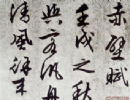 赤壁賦
壬戌之秋
與客泛舟
清風徐来